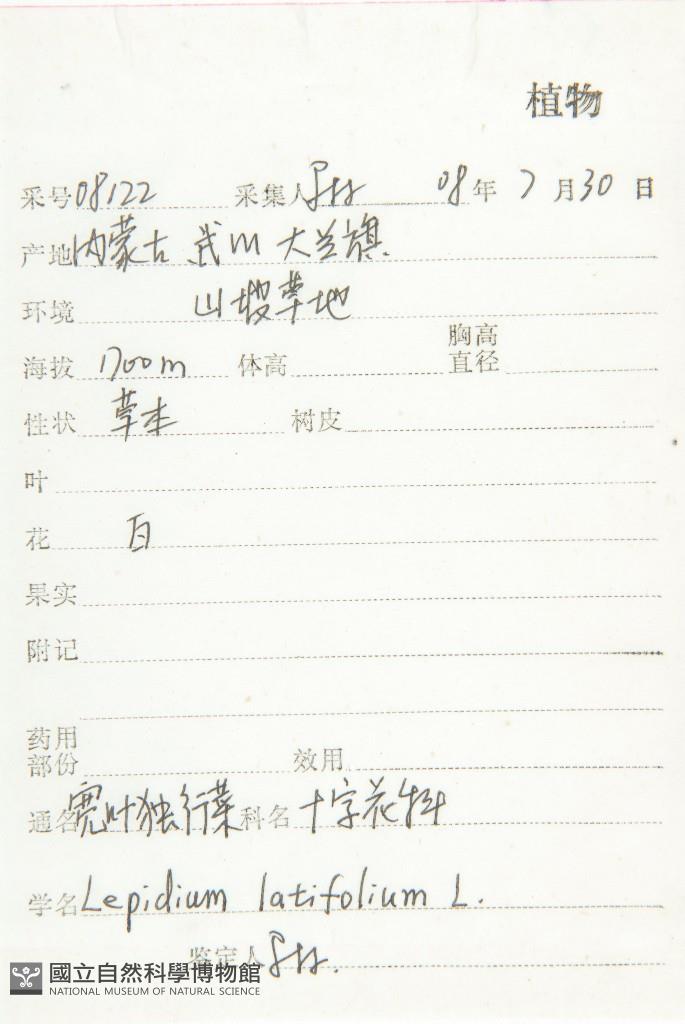 植物
采号 08122 采集人 08年 7月30日
产地 内蒙古 武川 大兰旗
环境 山坡草地
海拔 1700m 体高 胸高直径
性状 草本 树皮
叶
花 白
果实
附记
药用部份 效用
通名 宽叶独行菜 科名 十字花科
学名 Lepidium latifolium L.
鉴定人
國立自然科學博物館
NATIONAL MUSEUM OF NATURAL SCIENCE